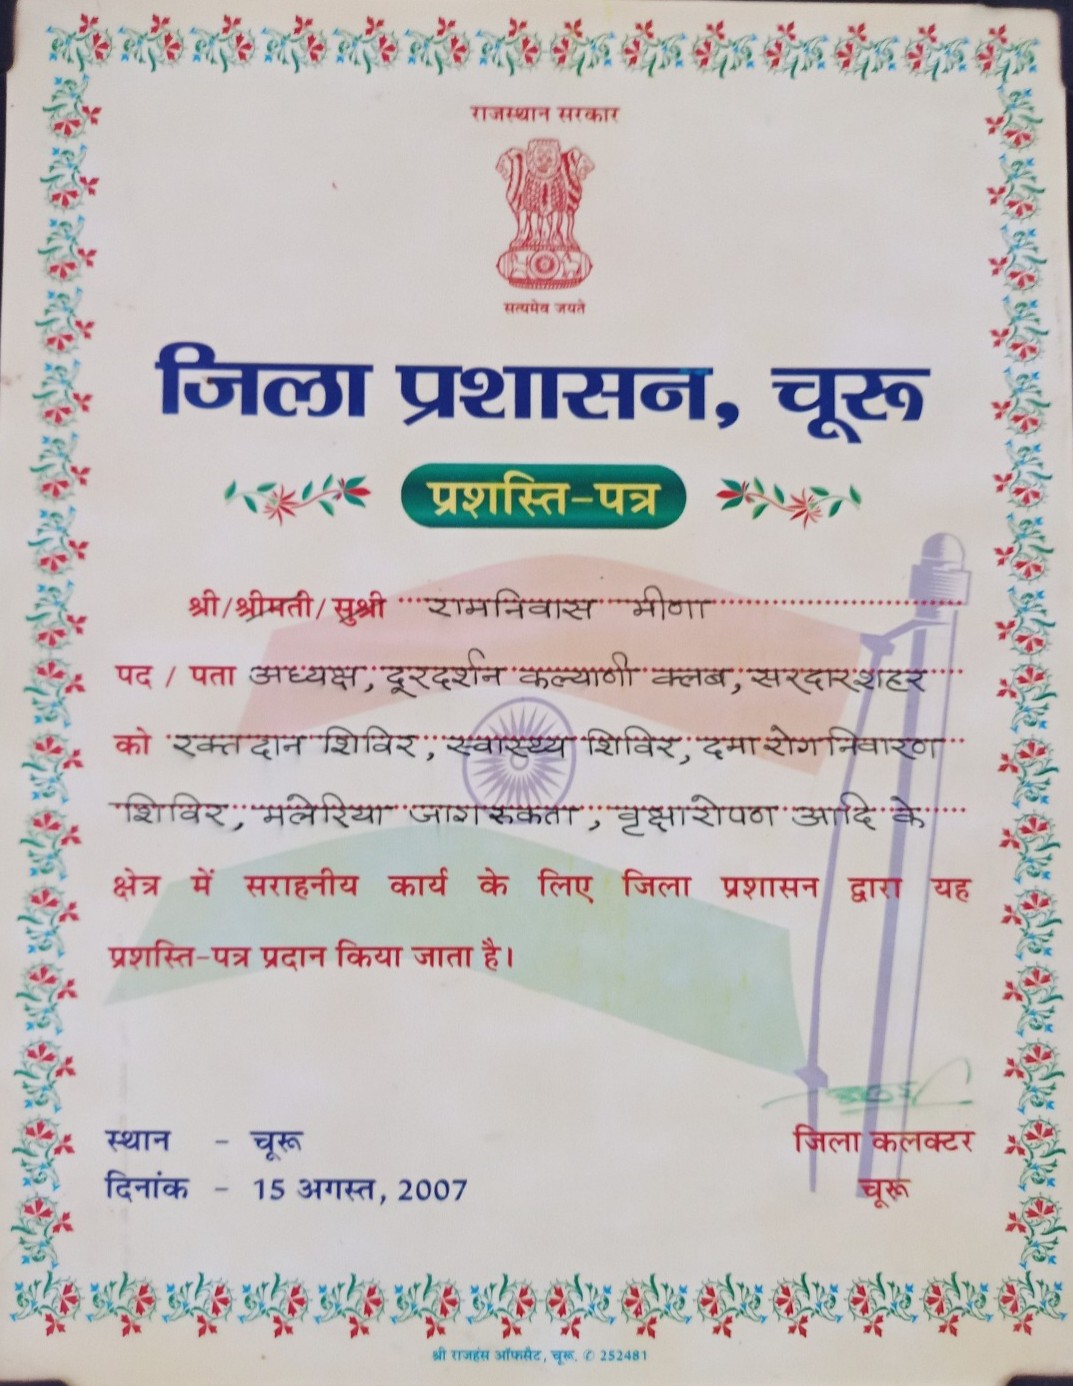 राजस्थान सरकार
सत्यमेव जयते
जिला प्रशासन, चूरू
प्रशस्ति-पत्र
श्री/श्रीमती/सुश्री रामनिवास मीणा
पद / पता अध्यक्ष, दूरदर्शन कल्याणी क्लब, सरदारशहर
को रक्तदान शिविर, स्वास्थ्य शिविर, दमा रोग निवारण
शिविर, मलेरिया जागरुकता, वृक्षारोपण आदि के
क्षेत्र में सराहनीय कार्य के लिए जिला प्रशासन द्वारा यह
प्रशस्ति-पत्र प्रदान किया जाता है।
स्थान - चूरू
जिला कलक्टर
दिनांक - 15 अगस्त, 2007
चूरू
श्री राजहंस ऑफसैट, चूरू. ✆ 252481